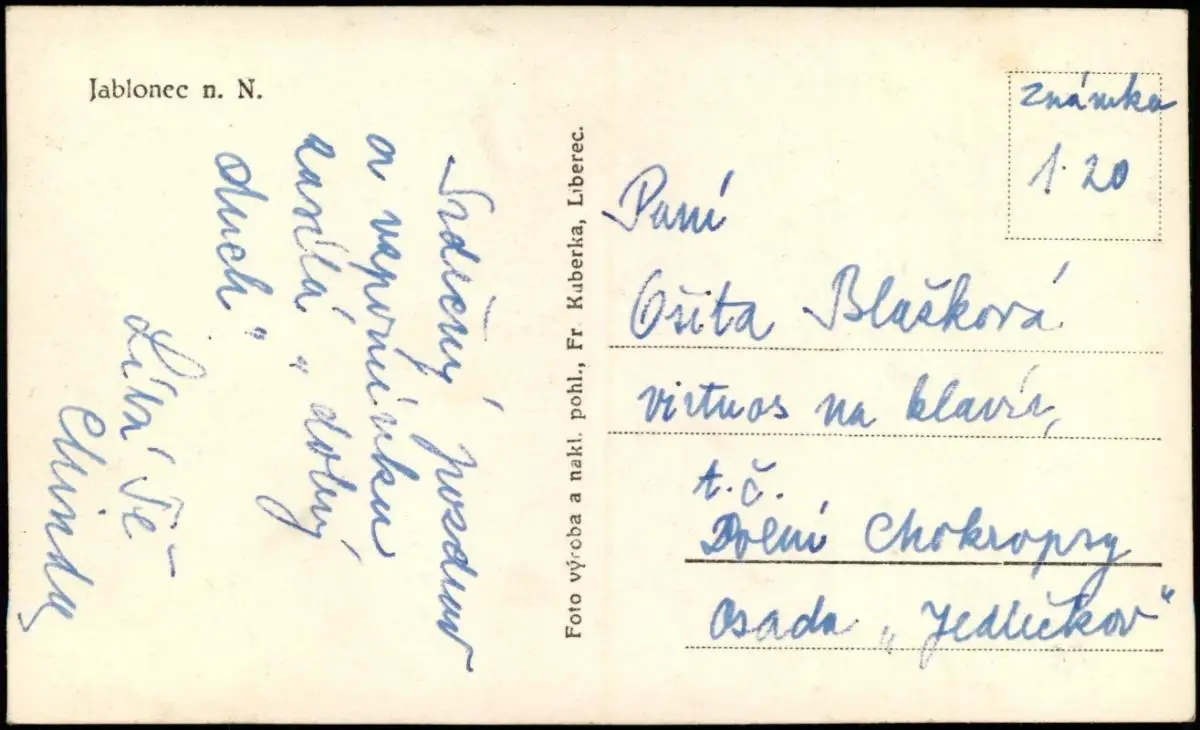 Jablonec n. N.
Srdečný pozdrav
a vzpomínku
zasílá „dobrý
duch"
Líbá Tě
Minda
Foto výroba a nakl. pohl., Fr. Kuberka, Liberec.
známka
1·20
Paní
Ošita Blašková
virtuos na klavír,
t.č.
Dolní Chokropsy
osada „Jedličkov"